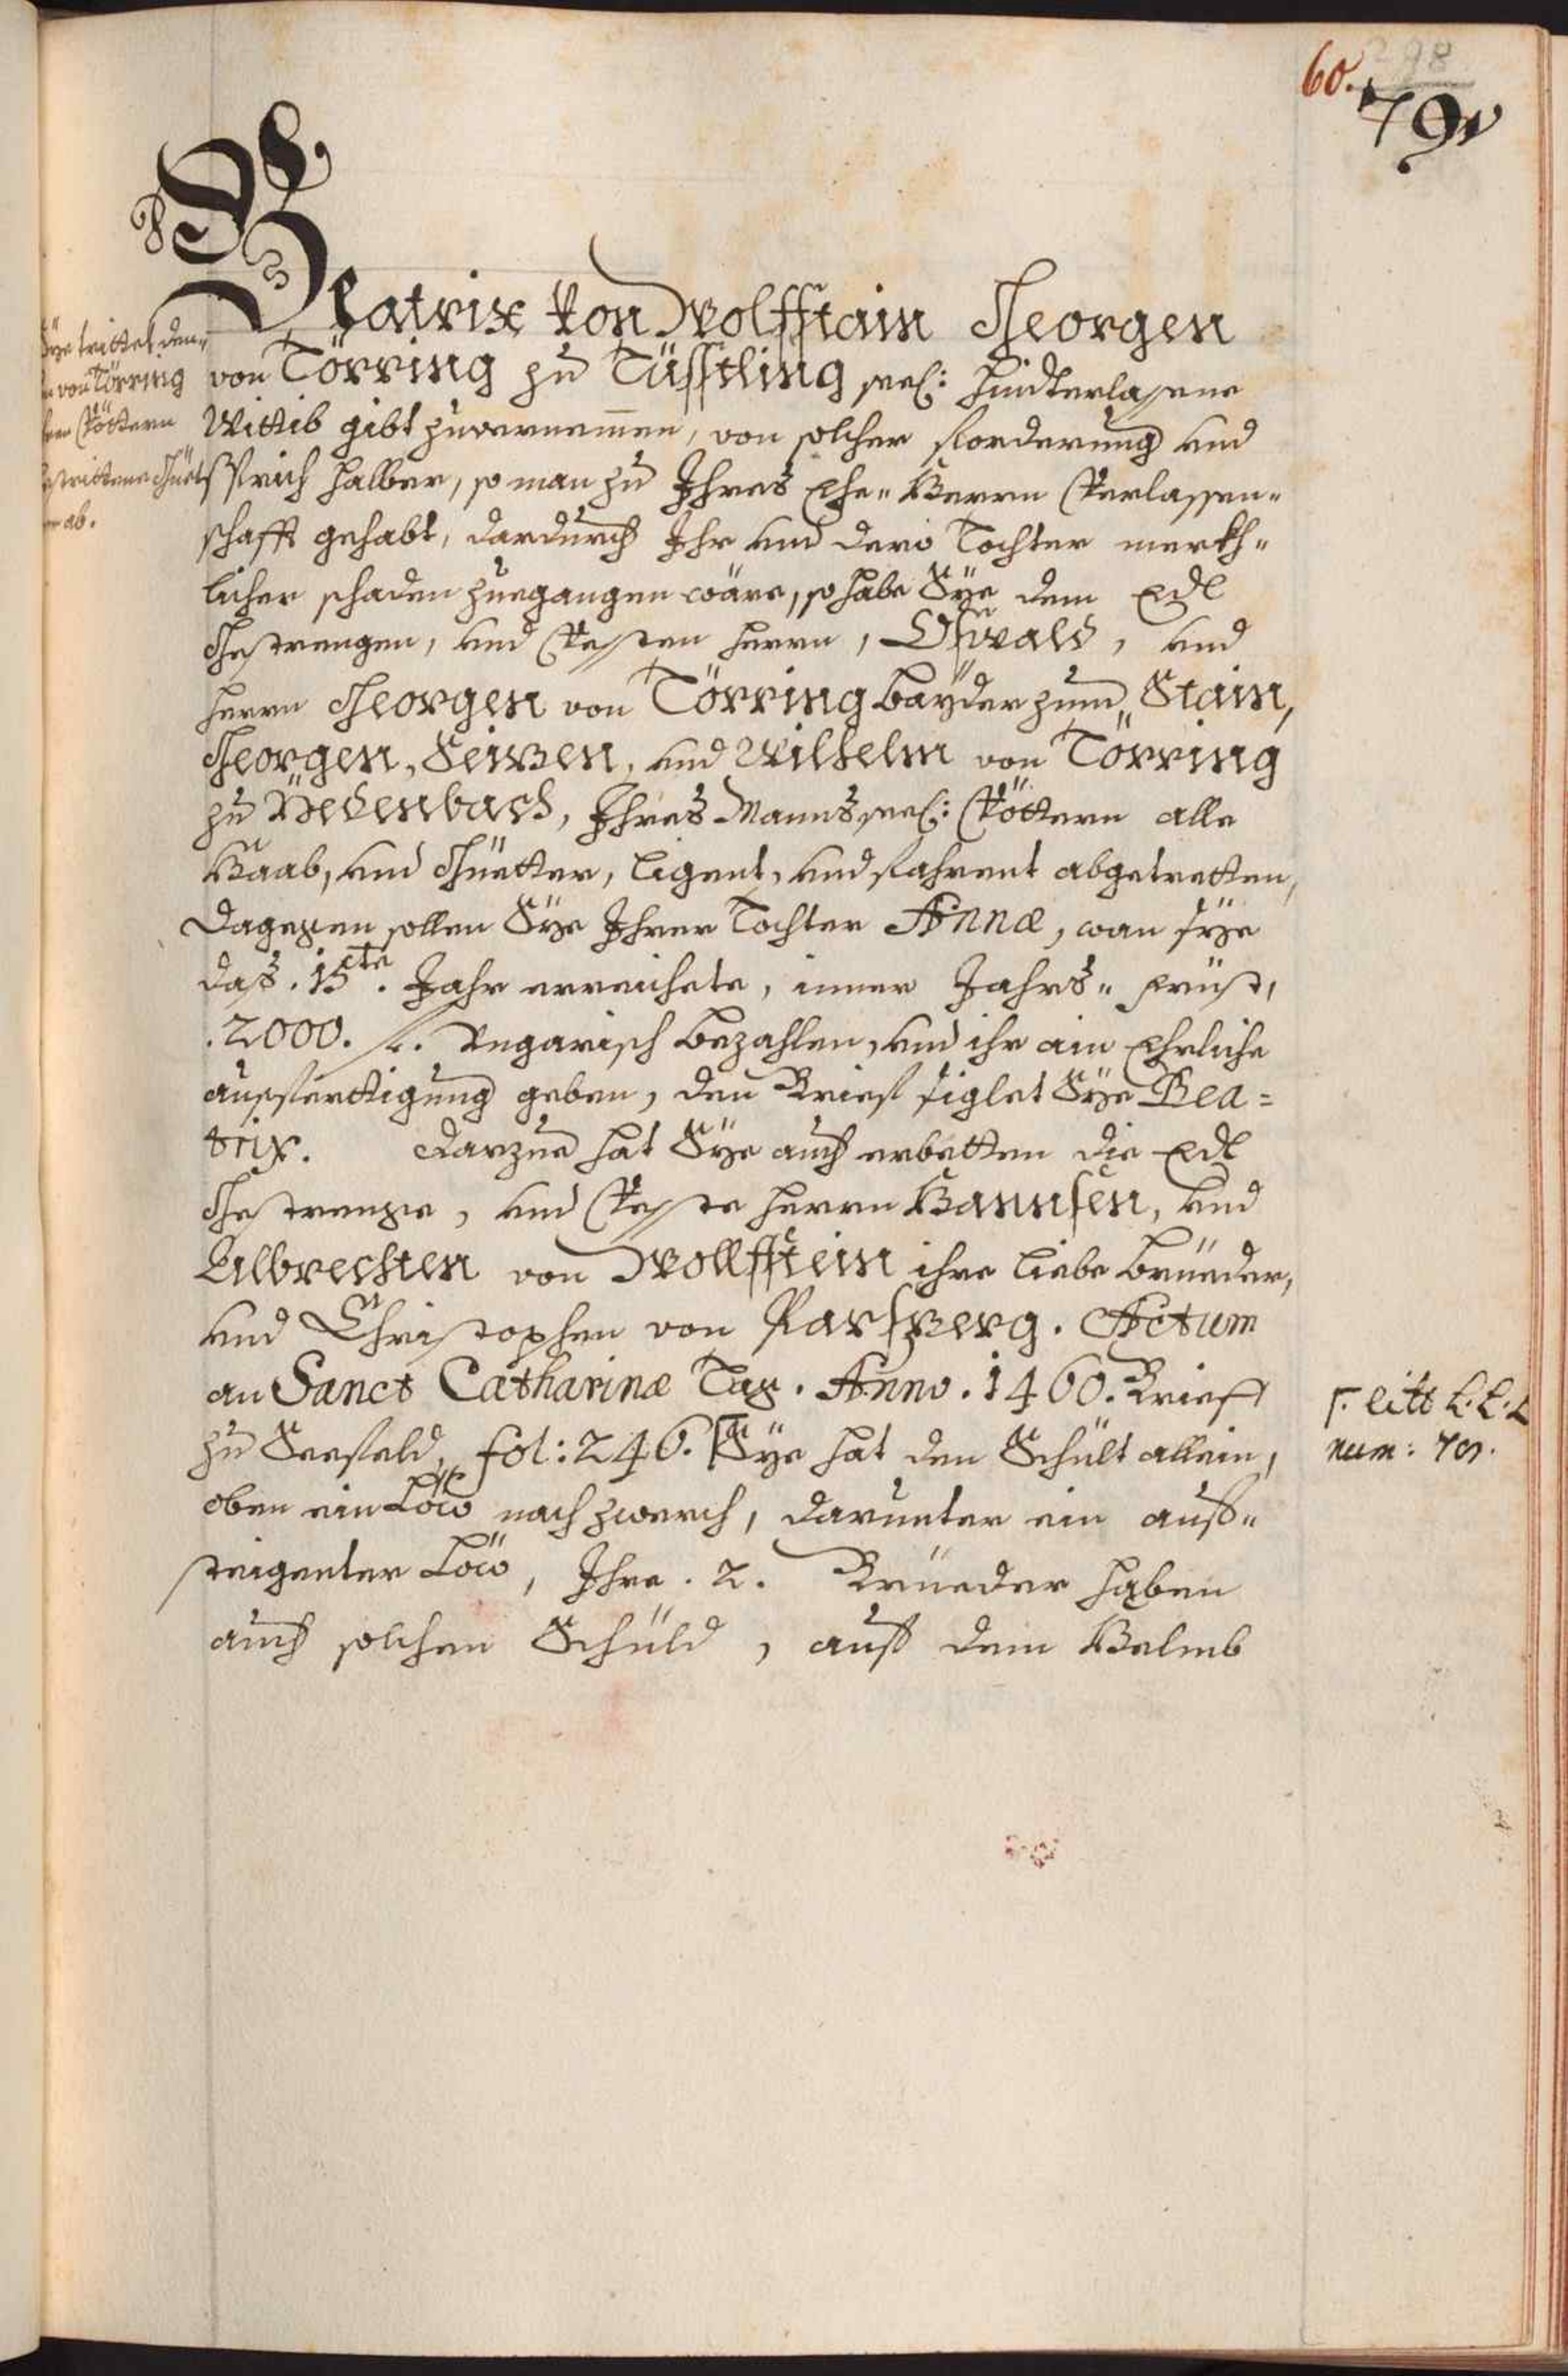 60. 298
79
Beatrix von Wolffstain Georgen
von Törring zu Tüssling seel: hinderlassene
Wittib gibt zuvernemmen, von solcher Forderung und
Sprich halber, so man zu Ihres Ehe-Herrn Verlassen-
schafft gehabt, dardurch Ihr und dero Tochter merkh-
licher schaden zuegangen wäre, so habe Sye dem Edl
Gestrengen, und Vessten herrn, Oswald, und
herrn Georgen von Törring bayder zum Stain,
Georgen, Seizen, und Wilhelm von Törring
zu , Ihres Manns seel: Vöttern alle
Haab, und Güetter, ligent, und fahrent abgetretten,
Dagegen sollen Sye Ihrer Tochter Annæ, wan sye
daß .15te. Jahr erreichete, inner Jahrs-früst,
.2000. fl. Ungarisch bezahlen, und ihr ain Ehrliche
aussfertigung geben, den Brief siglet Sye Bea=
trix. Darzue hat Sye auch erbetten die Edl
Gestrenge, und Vesste herrn Hannsen, und
Albrechten von Wollffstein ihre liebe brüeder,
und Christophen von Parsperg. Actum
an Sanct Catharinæ Tag. Anno. 1460. Brieff
zu Seefeld, fol: 246. Sye hat den Schült allein,
oben ein Löw nach zwerch, darunter ein auff-
steigenter Löw, Ihre .2. Brüeder haben
auch solchen Schüld, auff dem Helmb
Sye trittet den-
von Törring
Vöttern
Güet-
ab.
litt L.L.L
num: 79.